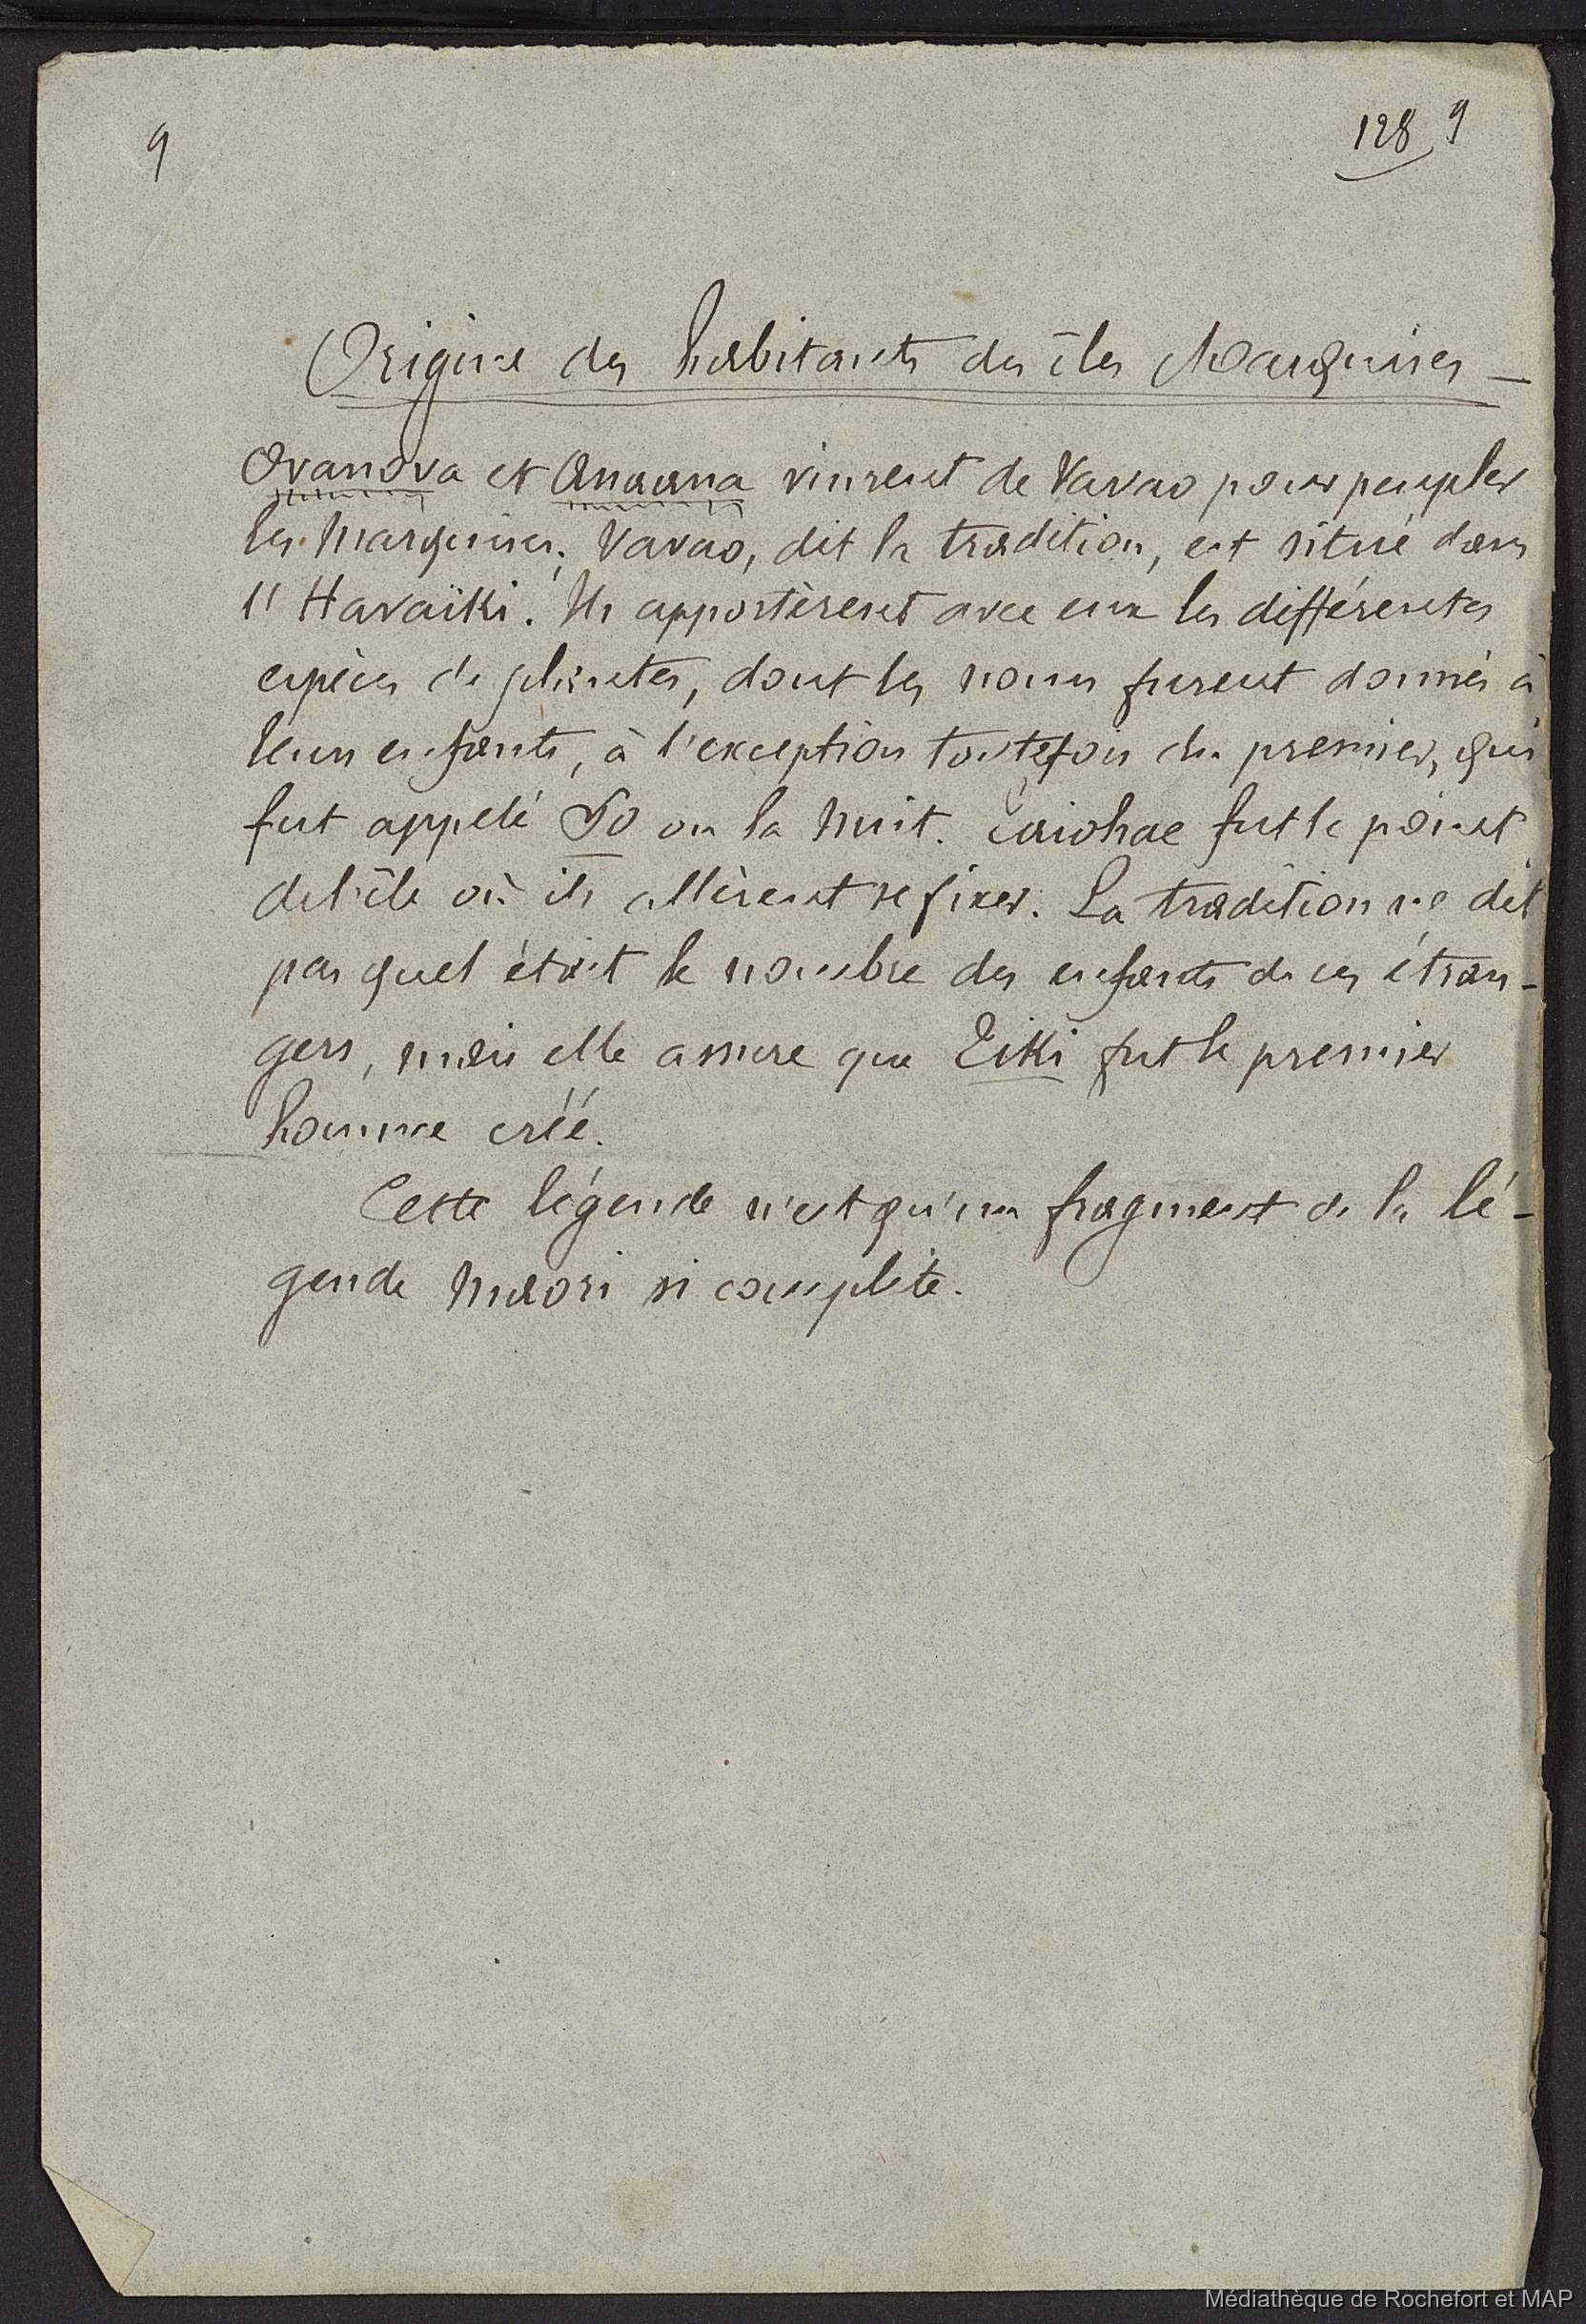 9
128 9
Origine des habitants des îles Marquises —
Ovanova et Anaana vinrent de Vavao pour peupler
les Marquises. Vavao, dit la tradition, est situé dans
l'Havaïki. Ils apportèrent avec eux les différentes
espèces de plantes, dont les noms furent donnés à
leurs enfants, à l'exception toutefois du premier, qui
fut appelé Po ou la Nuit. Taiohae fut le point
de l'île où ils allèrent se fixer. La tradition ne dit
pas quel était le nombre des enfants de ces étran-
gers, mais elle assure que Tiki fut le premier
homme créé.
Cette légende n'est qu'un fragment de la lé-
gende Maori si complète.
Médiathèque de Rochefort et MAP